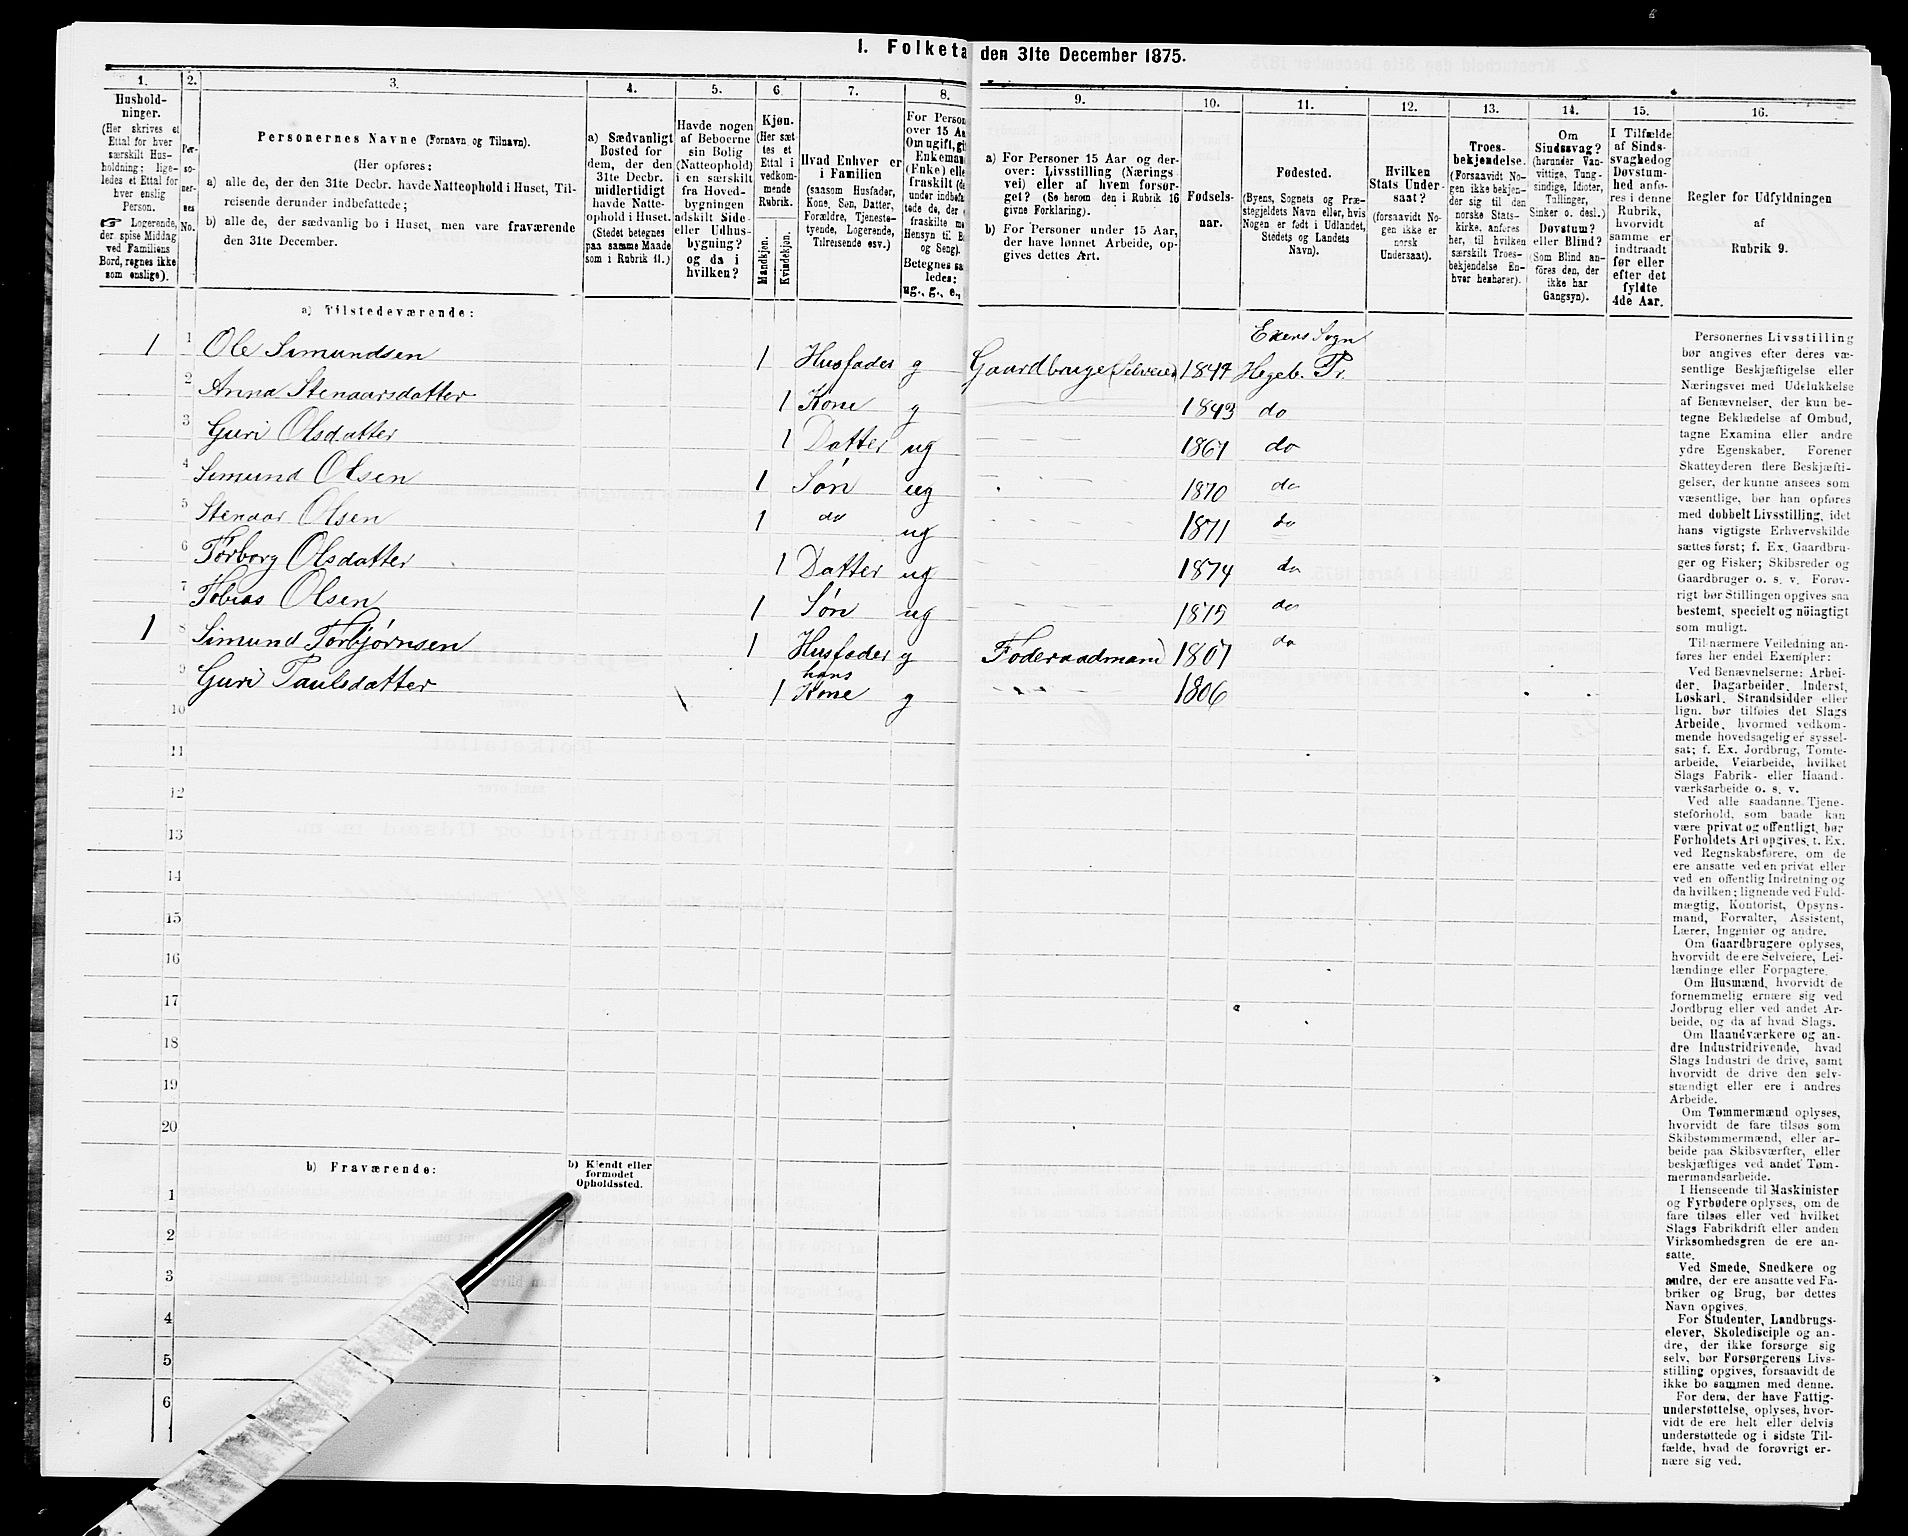 1. Folketa den 31te December 1875.
1. 2. 3. 4. 5. 6. 7. 8. 9. 10. 11. 12. 13. 14. 15. 16.
Hushold-
ninger.
(Her skrives et
Ettal for hver
særskilt Hus-
holdning; lige-
ledes et Ettal for
hver enslig
Person.
☞ Logerende,
der spise Middag
ved Familiens
Bord, regnes ikke
som enslige).
Per-
so-
ner-
nes
No.
Personernes Navne (Fornavn og Tilnavn).
(Her opføres:
a) alle de, der den 31te Decbr. havde Natteophold i Huset, Til-
reisende derunder indbefattede;
b) alle de, der sædvanlig bo i Huset, men vare fraværende
den 31te December.
a) Sædvanligt
Bosted for
dem, der den
31te Decbr.
midlertidigt
havde Natte-
ophold i Huset.
(Stedet betegnes
paa samme Maade
som i Rubrik 11.)
Havde nogen
af Beboerne
sin Bolig
(Natteophold)
i en særskilt
fra Hoved-
bygningen
adskilt Side-
eller Udhus-
bygning?
og da i
hvilken?
Kjøn.
(Her sæt-
tes et
Ettal i
vedkom-
mende
Rubrik.
Mandkjøn.
Kvindekjøn.
Hvad Enhver er
i Familien
(saasom Husfader,
Kone, Søn, Datter,
Forældre, Tjeneste-
tyende, Logerende,
Tilreisende osv.)
For Person
over 15 Aa
Om ugift, gi
Enkeman
(Enke) elle
fraskilt (de
under indbefa
tede de, der e
fraskilte me
Hensyn til B
og Seng).
Betegnes saa
ledes:
ug., g., e.,
a) For Personer 15 Aar og der-
over: Livsstilling (Nærings
vei) eller af hvem forsør-
get? (Se herom den i Rubrik 16
givne Forklaring).
b) For Personer under 15 Aar,
der have lønnet Arbeide, op-
gives dettes Art.
Fødsels-
aar.
Fødested.
(Byens, Sognets og Præ-
stegjeldets Navn eller, hvis
Nogen er født i Udlandet,
Stedets og Landets
Navn).
Hvilken
Stats Under-
saat?
(forsaavidt No-
gen ikke er
norsk
Undersaat).
Troes-
bekjendelse.
(Forsaavidt No-
gen ikke bekjen-
der sig til den
norske Stats-
kirke, anføres
her, til hvilken
særskilt Troes-
bekjendelse En-
hver henhører).
Om
Sindssvag?
(herunder Van-
vittige, Tung-
sindige, Idioter,
Tullinger,
Sinker o. desl.)
Døvstum?
eller Blind?
(Som Blind an-
føres den, der
ikke har
Gangsyn).
I Tilfælde
af Sinds-
svaghed og
Døvstum-
hed anfø-
res i denne
Rubrik,
hvorvidt
samme er
indtraadt
før eller
efter det
fyldte
4de Aar.
Regler for Udfyldningen
af
Rubrik 9.
a) Tilstedeværende:
1 1 Ole Simundsen 1 Husfader g Gaardbruger (Selveier 1847 Ekers Sogn Hegeb. Pr.
2 Anna Stenaarsdatter 1 Kone g 1843 do
3 Guri Olsdatter 1 Datter ug 1867 do
4 Simund Olsen 1 Søn ug 1870 do
5 Stenaar Olsen 1 do ug 1871 do
6 Torborg Olsdatter 1 Datter ug 1874 do
7 Tobias Olsen 1 Søn ug 1875 do
1 8 Simund Torbjørnsen 1 Husfader g Føderaadmand 1807 do
9 Guri Paulsdatter 1 hans Kone g 1806
10
11
12
13
14
15
16
17
18
19
20
b) Fraværende:
b) Kjendt eller
formodet
Opholdssted.
1
2
3
4
5
6
Personernes Livsstilling
bør angives efter deres væ-
sentlige Beskjæftigelse eller
Næringsvei med Udelukkelse
af Benævnelser, der kun be-
tegne Beklædelse af Ombud,
tagne Examina eller andre
ydre Egenskaber. Forener
Skatteyderen flere Beskjæfti-
gelser, der kunne ansees som
væsentlige, bør han opføres
med dobbelt Livsstilling, idet
hans vigtigste Erhvervskilde
sættes først; f. Ex. Gaardbru-
ger og Fisker; Skibsreder og
Gaardbruger o. s. v. Forøv-
rigt bør Stillingen opgives saa
bestemt, specielt og nöiagtigt
som muligt.
Til nærmere Veiledning an-
føres her endel Exempler:
Ved Benævnelserne: Arbei-
der, Dagarbeider, Inderst,
Løskarl, Strandsidder eller
lign. bør tilføies det Slags
Arbeide, hvormed vedkom-
mende hovedsagelig er syssel-
sat; f. Ex. Jordbrug, Tomte-
arbeide, Veiarbeide, hvilket
Slags Fabrik- eller Haand-
værksarbeide o. s. v.
Ved alle saadanne Tjene-
steforhold, som baade kan
være privat og offentligt, bør
Forholdets Art opgives, t. Ex.
ved Regnskabsførere, om de
ere ansatte ved en privat eller
ved en offentlig Indretning og
da hvilken; lignende ved Fuld-
mægtig, Kontorist, Opsyns-
mand, Forvalter, Assistent,
Lærer, Ingeniør og andre.
Om Gaardbrugere oplyses,
hvorvidt de ere Selveiere, Lei-
lændinge eller Forpagtere.
Om Husmænd, hvorvidt de
fornemmelig ernære sig ved
Jordbrug eller ved andet Ar-
beide, og da af hvad Slags.
Om Haandværkere og an-
dre Industridrivende, hvad
Slags Industri de drive, samt
hvorvidt de drive den selv-
stændigt eller ere i andres
Arbeide.
Om Tømmermænd oplyses,
hvorvidt de fare tilsøs som
Skibstømmermænd, eller ar-
beide paa Skibsværfter, eller
beskjæftiges ved andet Tøm-
mermandsarbeide.
I Henseende til Maskinister
og Fyrbødere oplyses, om de
fare tilsøs eller ved hvilket
Slags Fabrikdrift eller anden
Virksomhedsgren de ere an-
satte.
Ved Smede, Snedkere og
andre, der ere ansatte ved Fa-
briker og Brug, bør dettes
Navn opgives.
For Studenter, Landbrugs-
elever, Skoledisciple og an-
dre, der ikke forsørge sig
selv, bør Forsørgerens Livs-
stilling opgives, forsaavidt de
ikke bo sammen med denne.
For dem, der have Fattig-
understøttelse, oplyses, hvor-
vidt de ere helt eller delvis
understøttede og i sidste Til-
fælde, hvad de forøvrigt er-
nære sig ved.